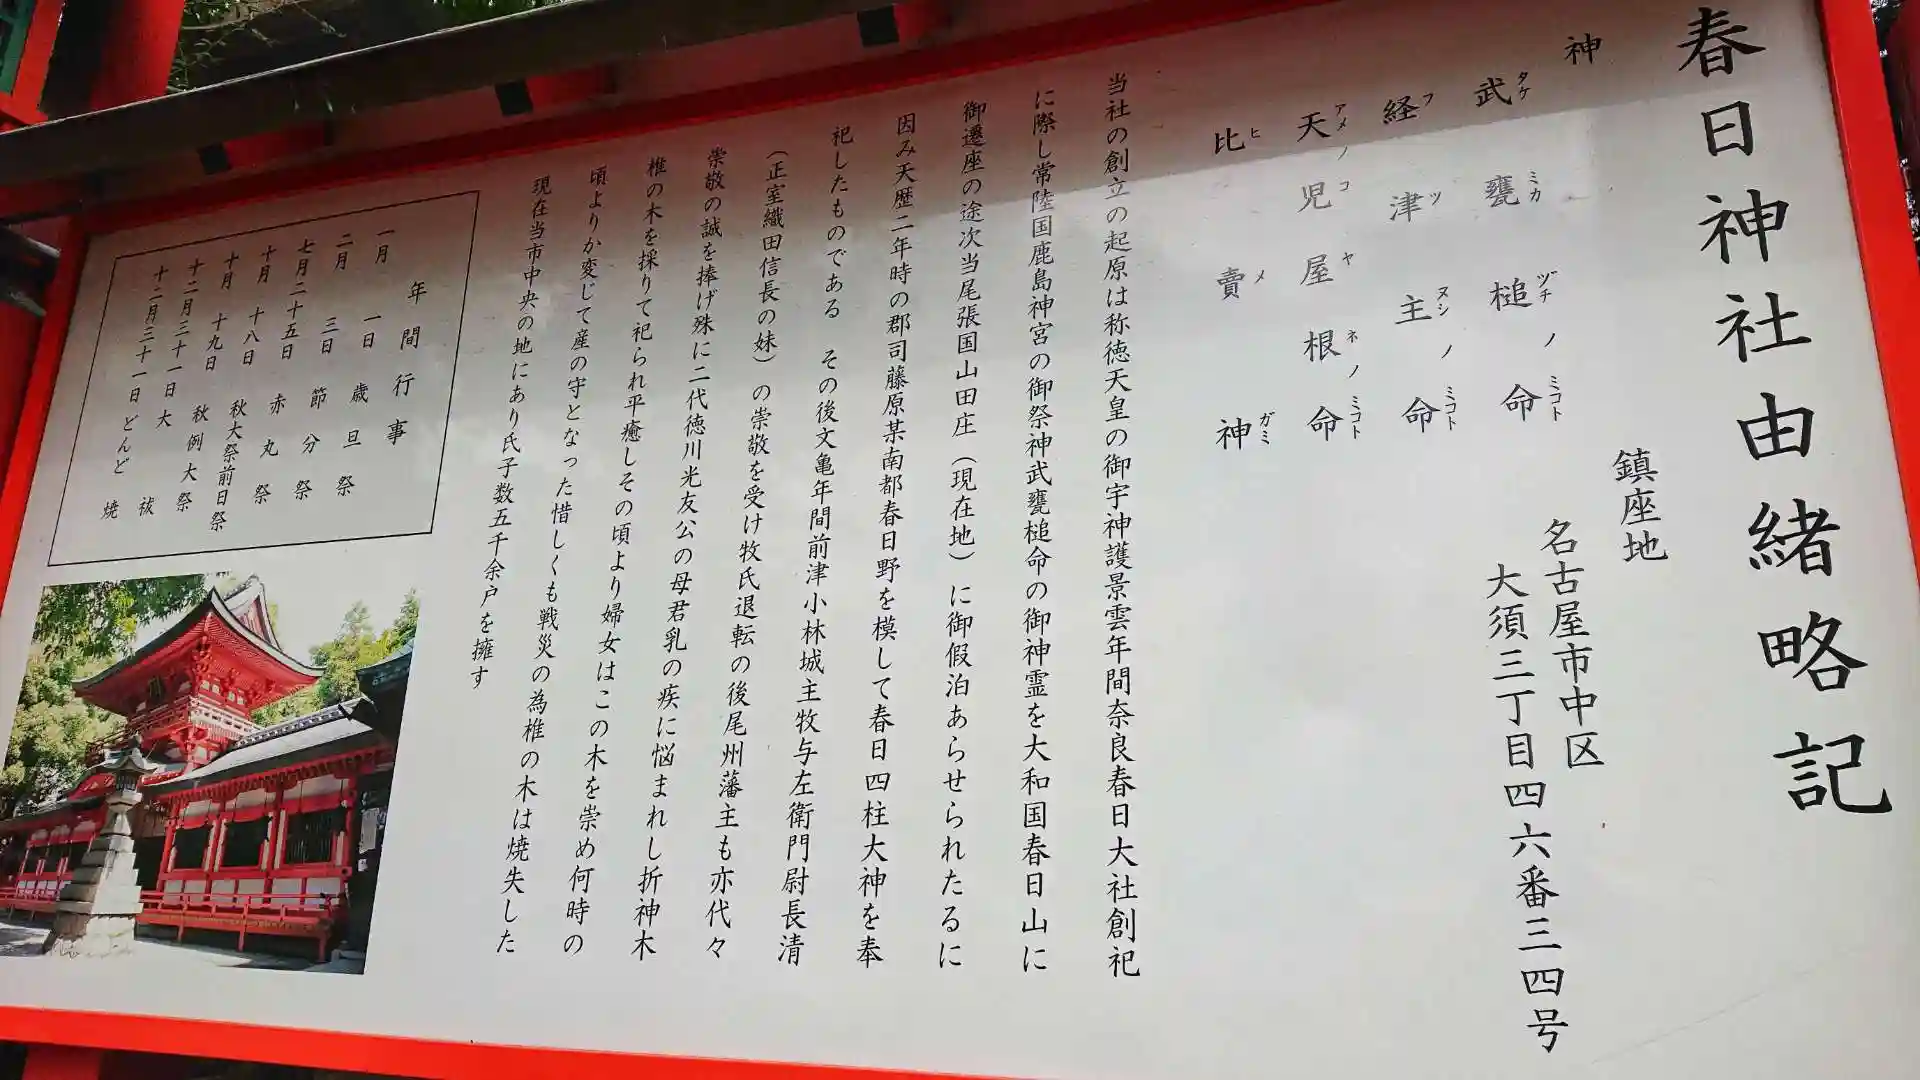 春日神社由緒略記
鎮座地
名古屋市中区
大須三丁目四六番三四号
神
武甕槌ノ命
タケミカヅチノミコト
経津主ノ命
フツヌシノミコト
天児屋根命
アメノコヤネノミコト
比賣神
ヒメガミ
当社の創立の起原は称徳天皇の御宇神護景雲年間奈良春日大社創祀
に際し常陸国鹿島神宮の御祭神武甕槌命の御神霊を大和国春日山に
御遷座の途次当尾張国山田庄（現在地）に御假泊あらせられたるに
因み天歴二年時の郡司藤原某南都春日野を模して春日四柱大神を奉
祀したものである　その後文亀年間前津小林城主牧与左衛門尉長清
（正室織田信長の妹）の崇敬を受け牧氏退転の後尾州藩主も亦代々
崇敬の誠を捧げ殊に二代徳川光友公の母君乳の疾に悩まれし折神木
椎の木を採りて祀られ平癒しその頃より婦女はこの木を崇め何時の
頃よりか変じて産の守となった惜しくも戦災の為椎の木は焼失した
現在当市中央の地にあり氏子数五千余戸を擁す
年間行事
一月　一日　歳旦祭
二月　三日　節分祭
七月二十五日　赤丸祭
十月　十八日　秋大祭前日祭
十月　十九日　秋例大祭
十二月三十一日　大祓
十二月三十一日　どんど焼